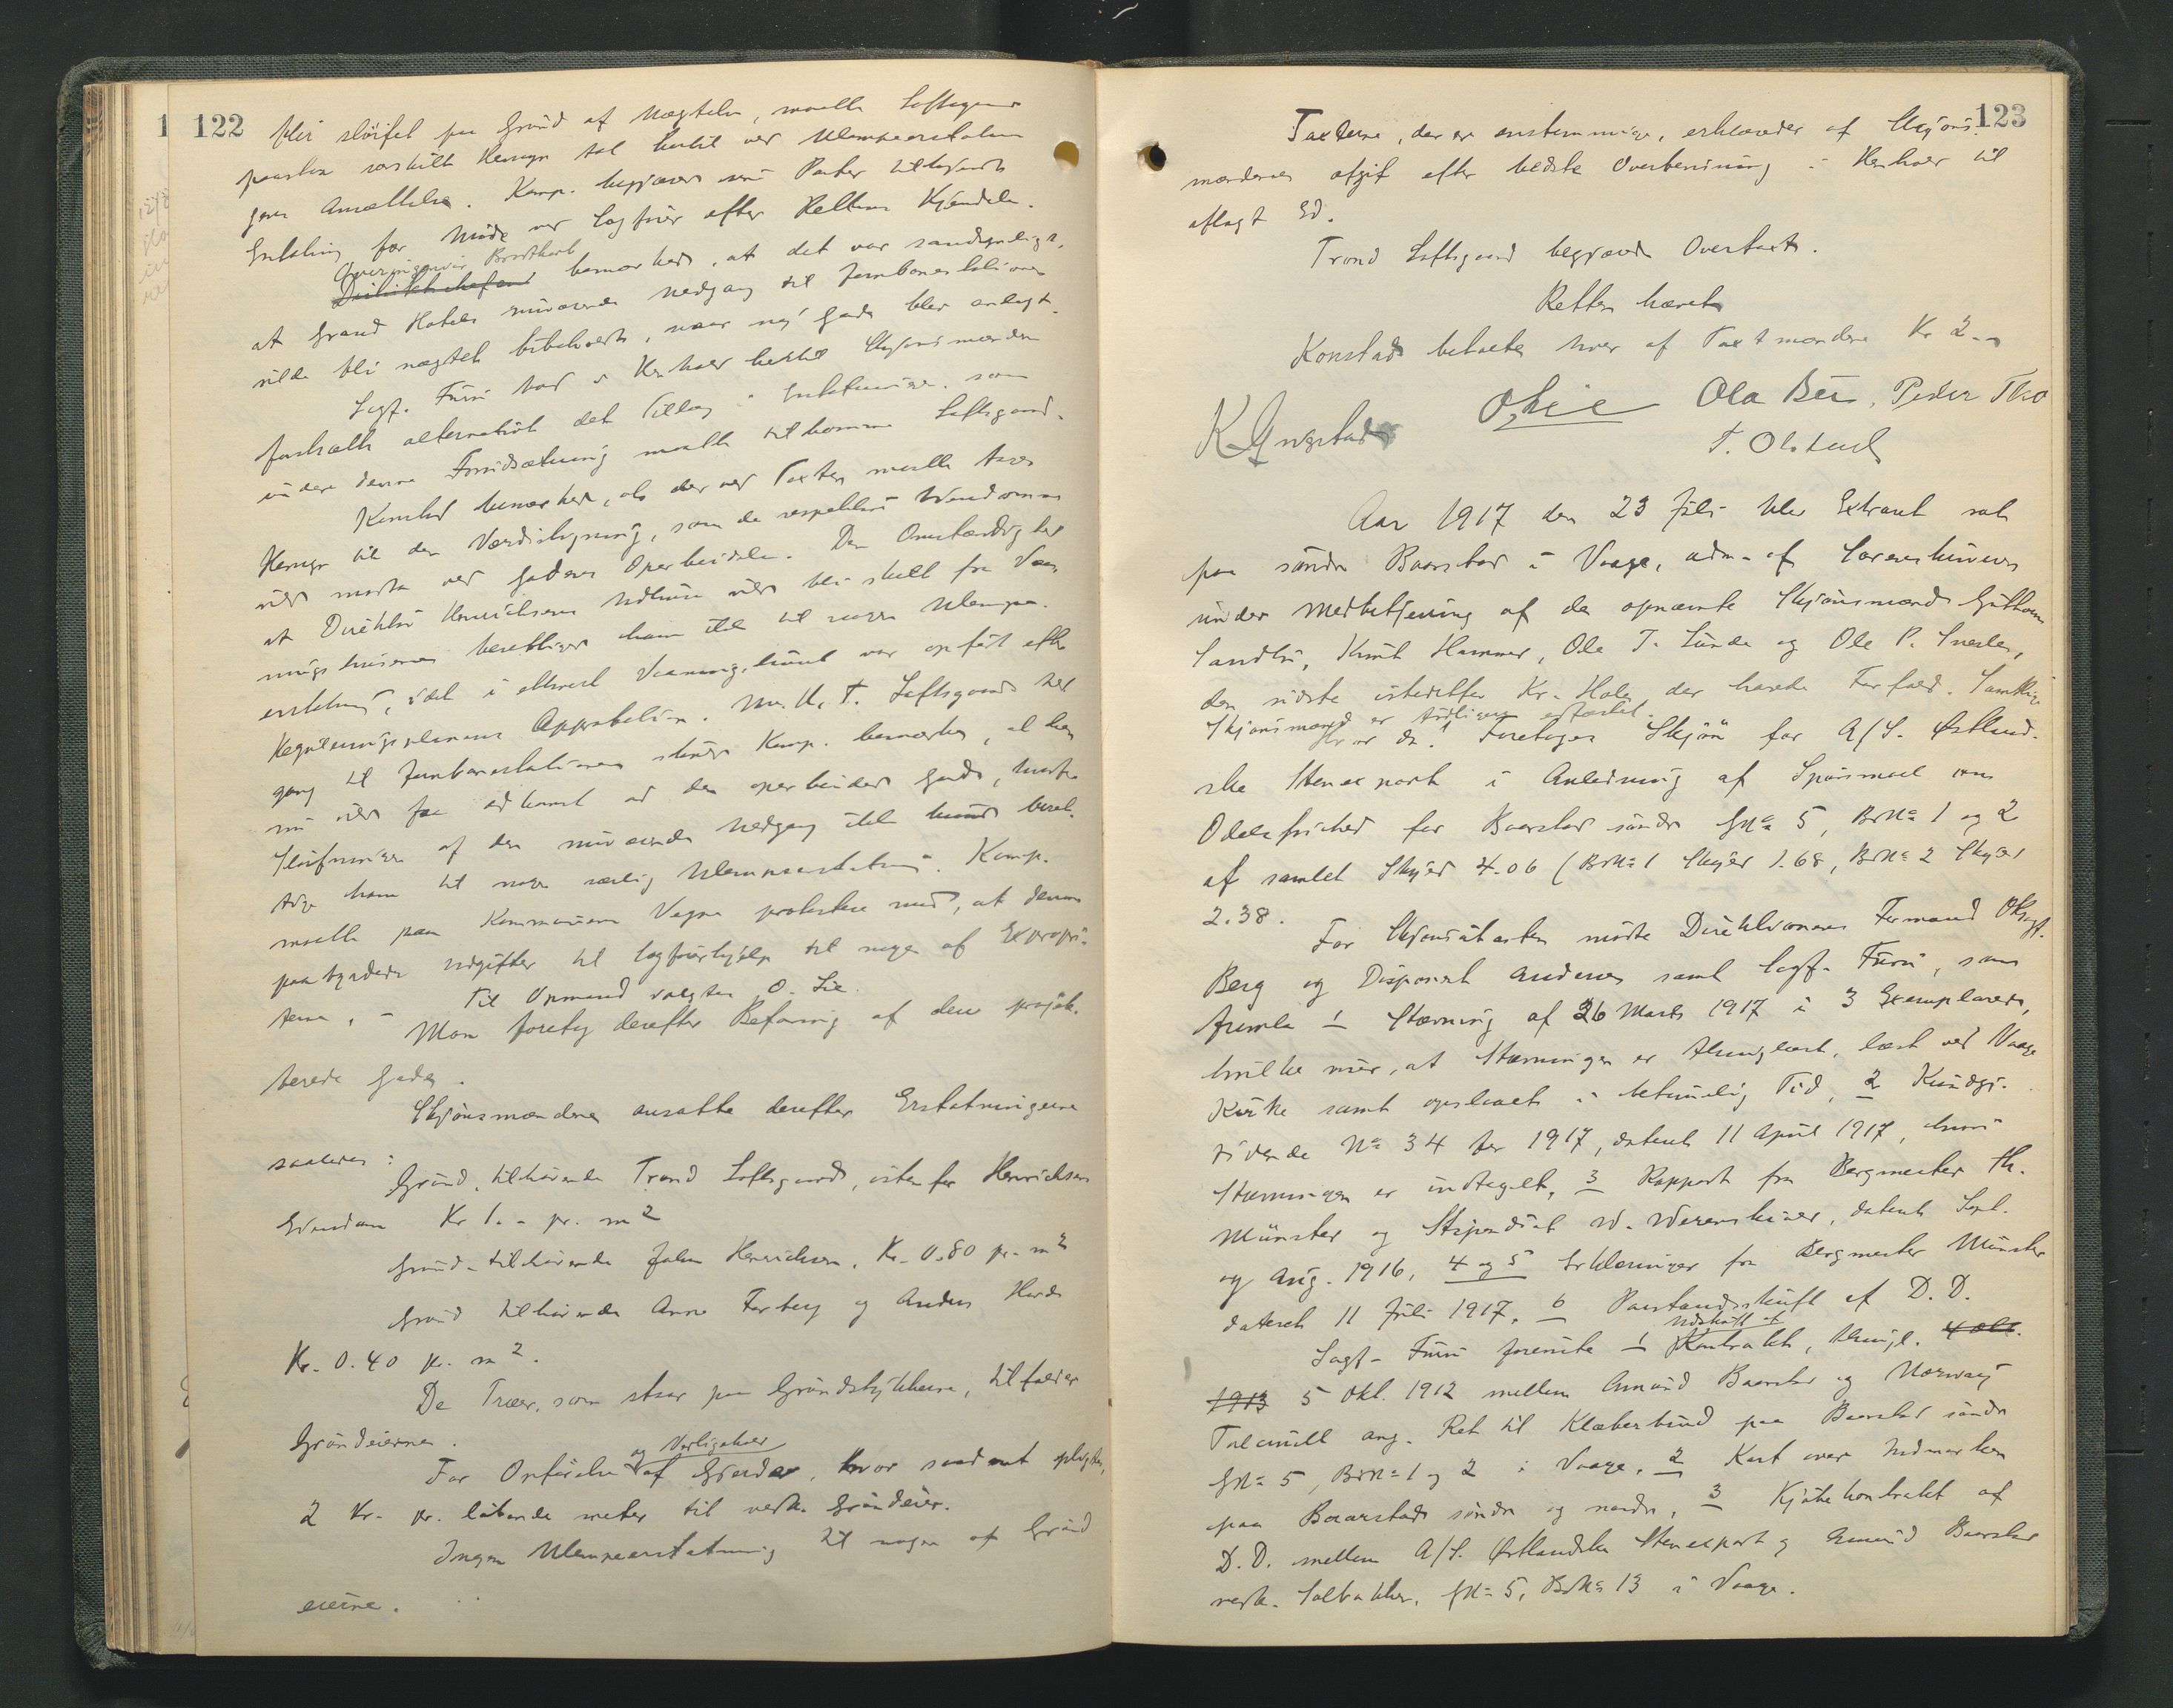 122
blir sløifet paa Grund af Nægtelse, maatte Loftsgaard
paastaa særskilt Hensyn tat hertil ved Ulempeerstatningen
gens Ansættelse. Komp. begjærer sine Parter tilkjendt
Erstatning for Møde ved Sagfører efter Rettens Kjendelse.
Overingeniør Brodtkorb
Distriktschefen bemærkede, at det var sandsynligt,
at Grand Hotels nuværende Nedgang til Jernbanestationen
vilde bli nægtet bibeholdt, naar ny Gade blev anlagt.
Sagf. Furu bad i Henhold hertil Skjønsmændene
fastsætte alternativt det Tillæg i Erstatningen, som
under denne Forudsætning maatte tilkomme Loftsgaard.
Konstad bemærkede, at der ved Taxten maatte tages
Hensyn til den Værdistigning, som de respektive Eiendomme
vilde motta ved Gadens Oparbeidelse. Den Omstændighed
at Direktør Henrichsens Udhuse vilde bli skilt fra Vaa-
ningshusene berettiger ham ikke til nogen Ulempe-
erstatning, idet i ethvert Vaaningshuset var opført efter
Reguleringsplanens Approbation. Mr. K. T. Loftsgaards Ned-
gang til Jernbanestationen stænges Komp. bemærket, at han
nu vilde faa adkomst ad den oparbeidede Gade, hvorfor
Sløifningen af den nuværende Nedgang ikke kunde beret-
tige ham til nogen særlig Ulempeerstatning. Komp.
maatte paa Kommunens Vegne protestere mod, at denne
paabyrdedes Udgifter til Sagførerhjælp til nogen af Expropri-
terne. –
Til Opmand valgtes O. Lie.
Man foretog derefter Befaring af den projek-
terede Gade.
Skjønsmændene ansatte derefter Erstatningerne
saaledes:
Grund, tilhørende Trond Loftsgaard, østenfor Henrichsens
Eiendom Kr 1.- pr. m2
Grund tilhørende John Henrichsen, Kr. 0.80 pr. m2
Grund tilhørende Anne Forberg og Anders Horde
Kr. 0.40 pr. m2.
De Træer, som staar paa Grundstykkerne, tilfalder
Grundeierne.
og Vedligehold
For Opførelse af Gjerder, hvor saadant opsættes,
2 Kr. pr. løbende meter til vedk. Grundeier.
Ingen Ulempeerstatning til nogen af Grund
eierne.
123
Taxterne, der er enstemmige, erklæredes af Skjøns-
mændenes afgit efter bedste Overbevisning i Henhold til
aflagt Ed.
Trond Loftsgaard begjærede Overtaxt.
Retten hævet
Konstad betalte hver af Taxtmændene Kr 2.-
K Kongstad OLie Ola Bu, Peder Tho
T. Olstad
Aar 1917 den 23 Juli blev Extraret sat
paa søndre Baarstad i Vaage, adm. af Sorenskriveren
under Medbetjening af de opnævnte Skjønsmænd Guttorm
Sandbu, Knut Hammer, Ole T. Sunde og Ole P. Snerle,
den sidste istedetfor Kr. Hole, der havde Forfald. Samtlige
Skjønsmænd er tidligere edfæstet.
Hvor da: Foretoges Skjøn for A/S. Østland-
ske Stenexport i Anledning af Spørsmaal om
Odelsfrihed for Baarstad søndre GNo 5, BrNo 1 og 2
af samlet Skyld 4.06 (BrNo 1 Skyld 1.68, BrNo 2 Skyld
2.38.
For Skjønsitasten mødte Direktionens Formand Oksagf.
Berg og Disponent Andersen samt Sagf. Furu, som
fremla 1 Stævning af 26 Marts 1917 i 3 Exemplarer,
hvilke viser, at Stævningen er thinglæst, læst ved Vaage
Kirke samt opslaaet i betimelig Tid, 2 Kundgj-
sidende No 34 for 1917, dateret 11 April 1917, hvori
Stævningen er indtaget, 3 Rapport fra Bergmester Th.
Münster og Stipendiat W. Werenskiold, dateret Sept.
og Aug. 1916, 4 og 5 Erklæringer fra Bergmester Münster
dateret 11 Juli 1917, 6 Paastandsskrift af D. D.
Udskrift af
Sagf. Furu fremla 1 Kontrakt, thingl. 4 Okt.
1913 5 Okt. 1912 mellem Amund Baarstad og Norway
Talcmill ang. Ret til Klæberbrud paa Baarstad søndre
GNo 5, BrNo 1 og 2 i Vaage, 2 Kart over Indmarken
paa Baarstad søndre og nordre, 3 Kjøbekontrakt af
D.D. mellem A/S. Østlandske Stenexport og Amund Baarstad
vedk. Solbakken, GNo 5, BrNo 13 i Vaage.